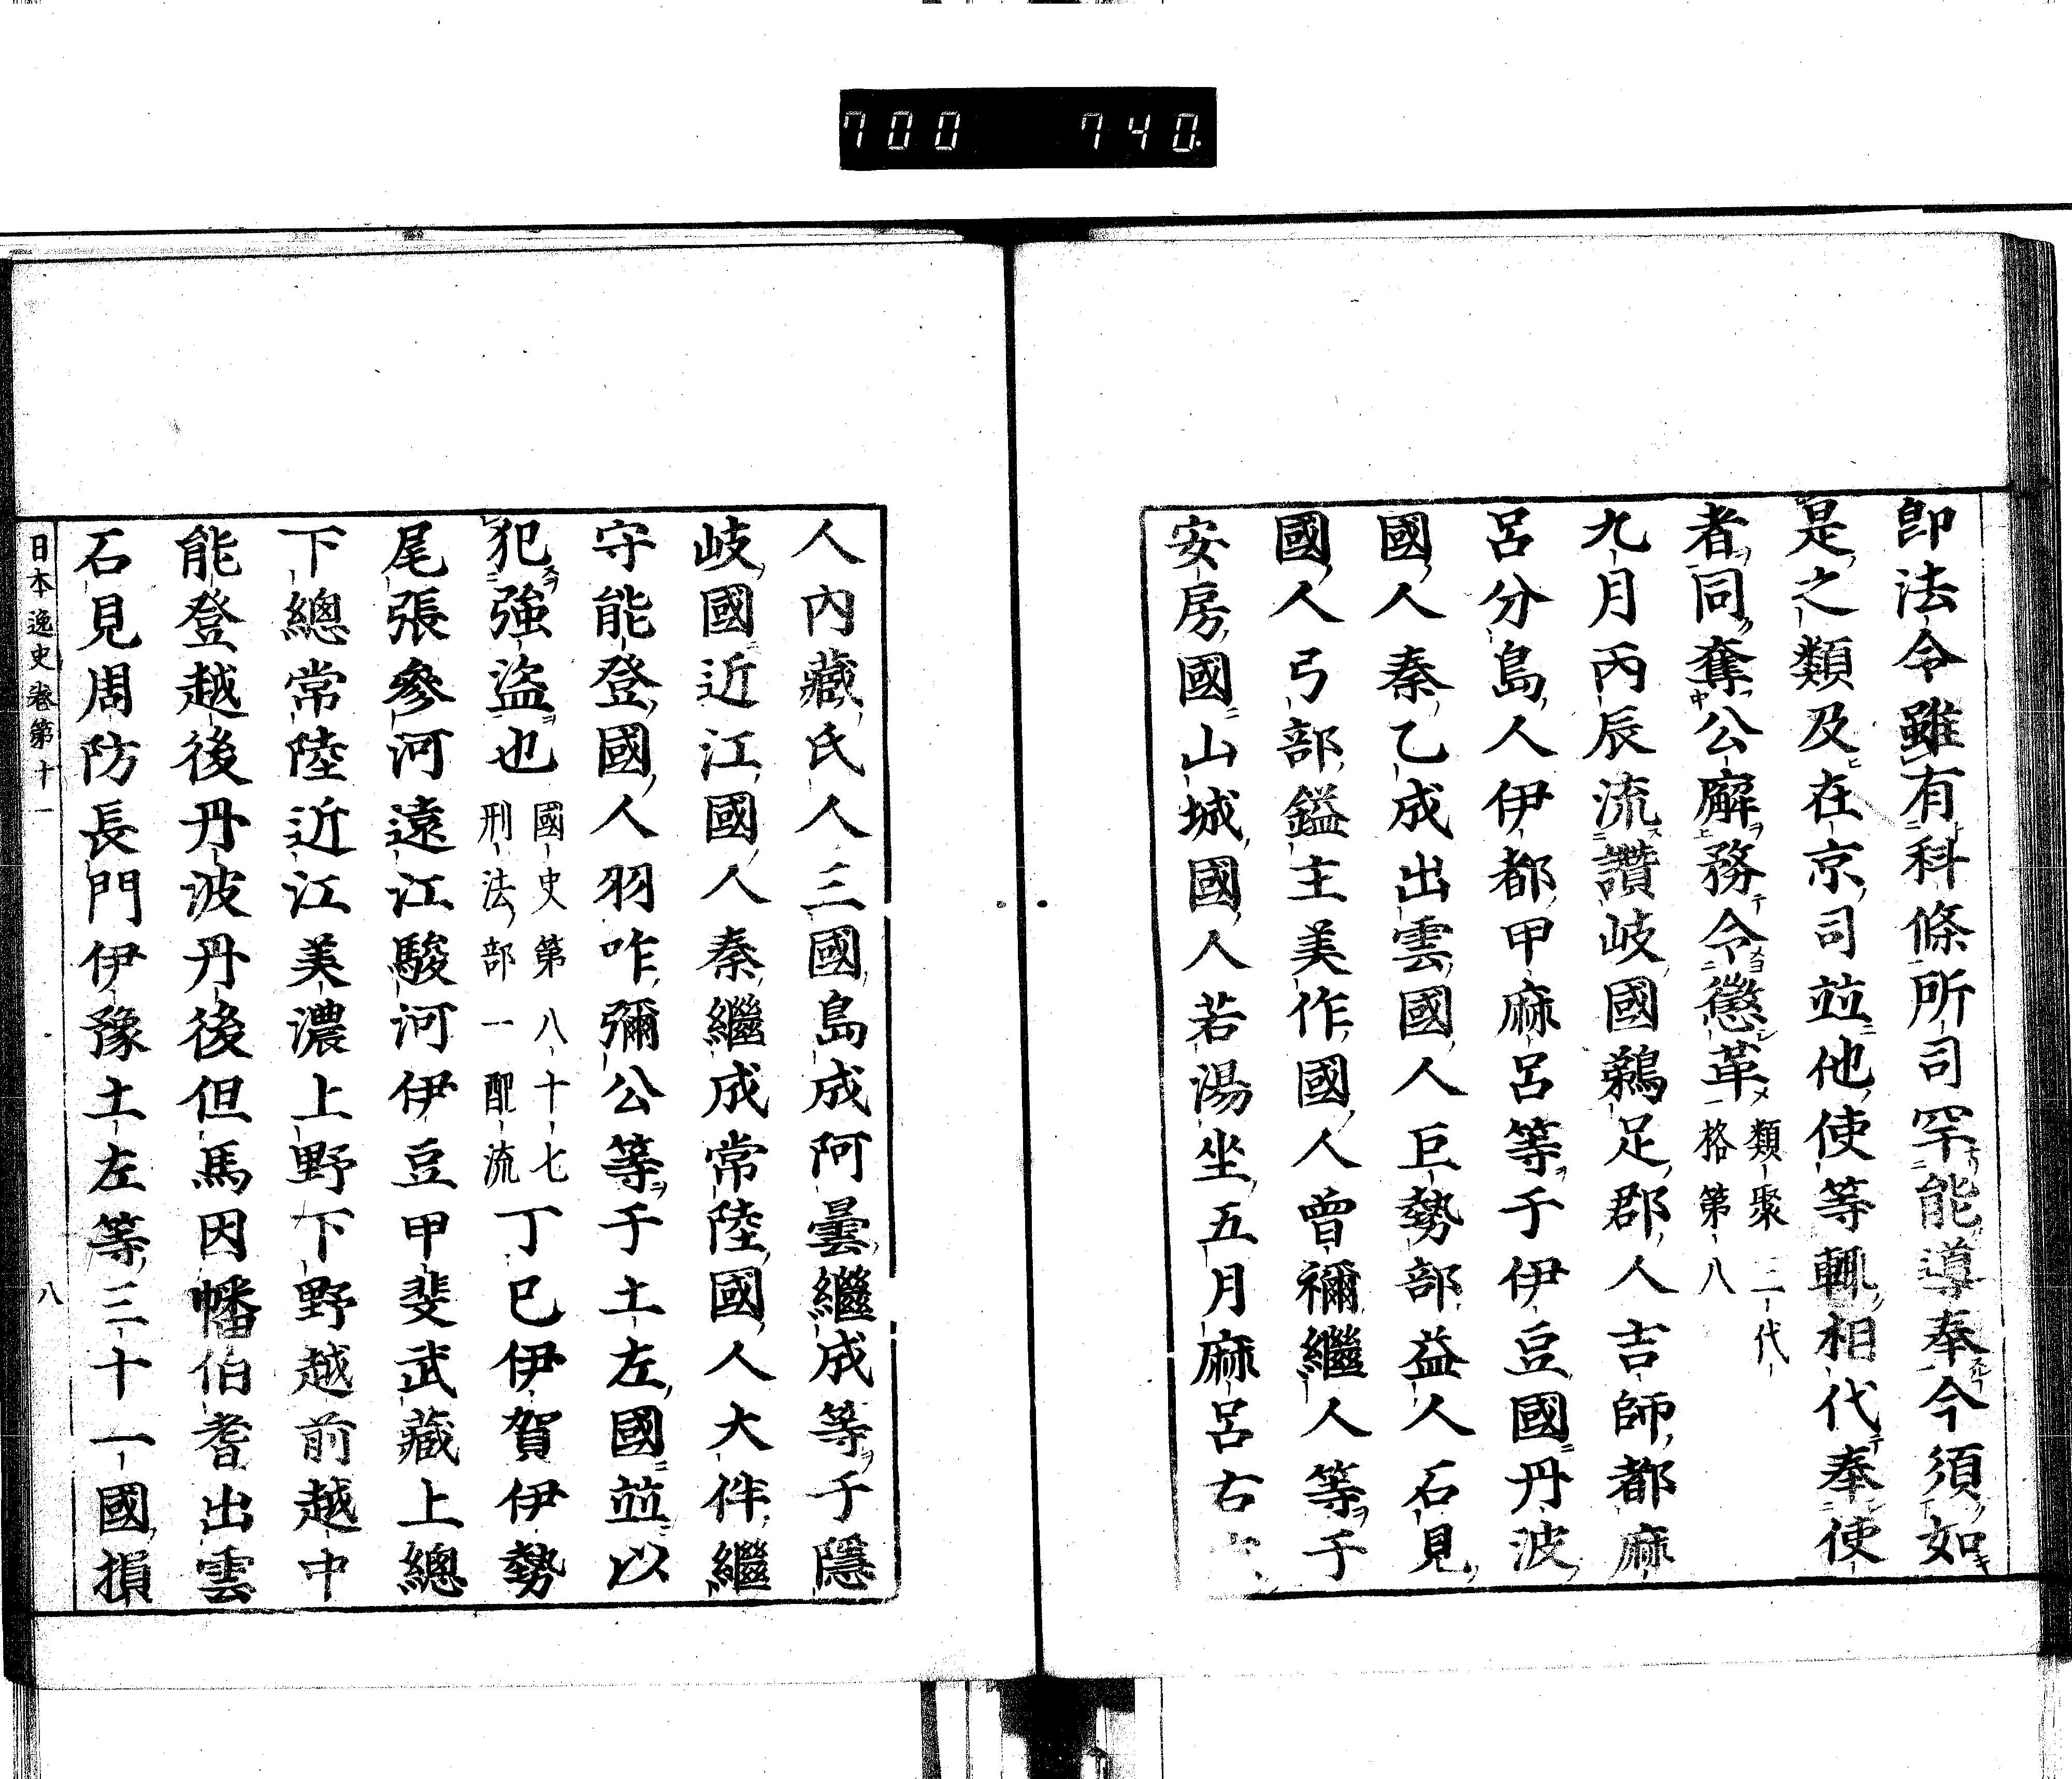 700 740.
卽法令雖有科條所司罕能導奉今須如
是之類及在京司竝他使等輙相代奉使
者同奪公廨務令懲革類聚三代
格第八
九月丙辰流讚岐國鵜足郡人吉師都麻
呂分島人伊都甲麻呂等于伊豆國丹波
國人秦乙成出雲國人巨勢部益人石見
國人弓部鎰主美作國人曾禰繼人等于
安房國山城國人若湯坐五月麻呂右
人內藏氏人三國島成阿曇繼成等于隱
岐國近江國人秦繼成常陸國人大伴繼
守能登國人羽咋彌公等于土左國竝以
犯強盜也國史第八十七
刑法部一配流丁巳伊賀伊勢
尾張參河遠江駿河伊豆甲斐武藏上總
下總常陸近江美濃上野下野越前越中
能登越後丹波丹後但馬因幡伯耆出雲
石見周防長門伊豫土左等三十一國損
日本逸史卷第十一 八